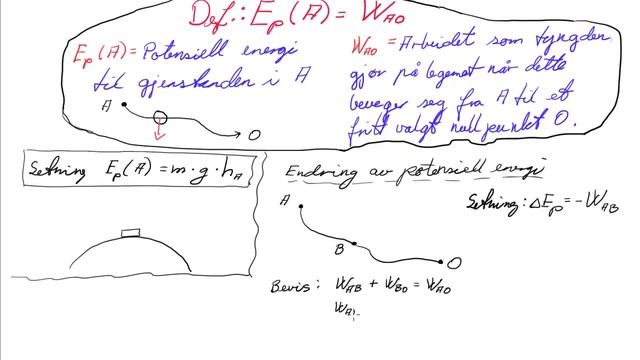 Def.: Ep(A) = WAO
Ep(A) = Potensiell energi
til gjenstanden i A
WAO = Arbeidet som tyngden
gjør på legemet når dette
beveger seg fra A til et
fritt valgt nullpunkt O.
A
O
Setning Ep(A) = m·g·hA
Endring av potensiell energi
Setning: ΔEp = -WAB
A
B
O
Bevis: WAB + WBO = WAO
WA